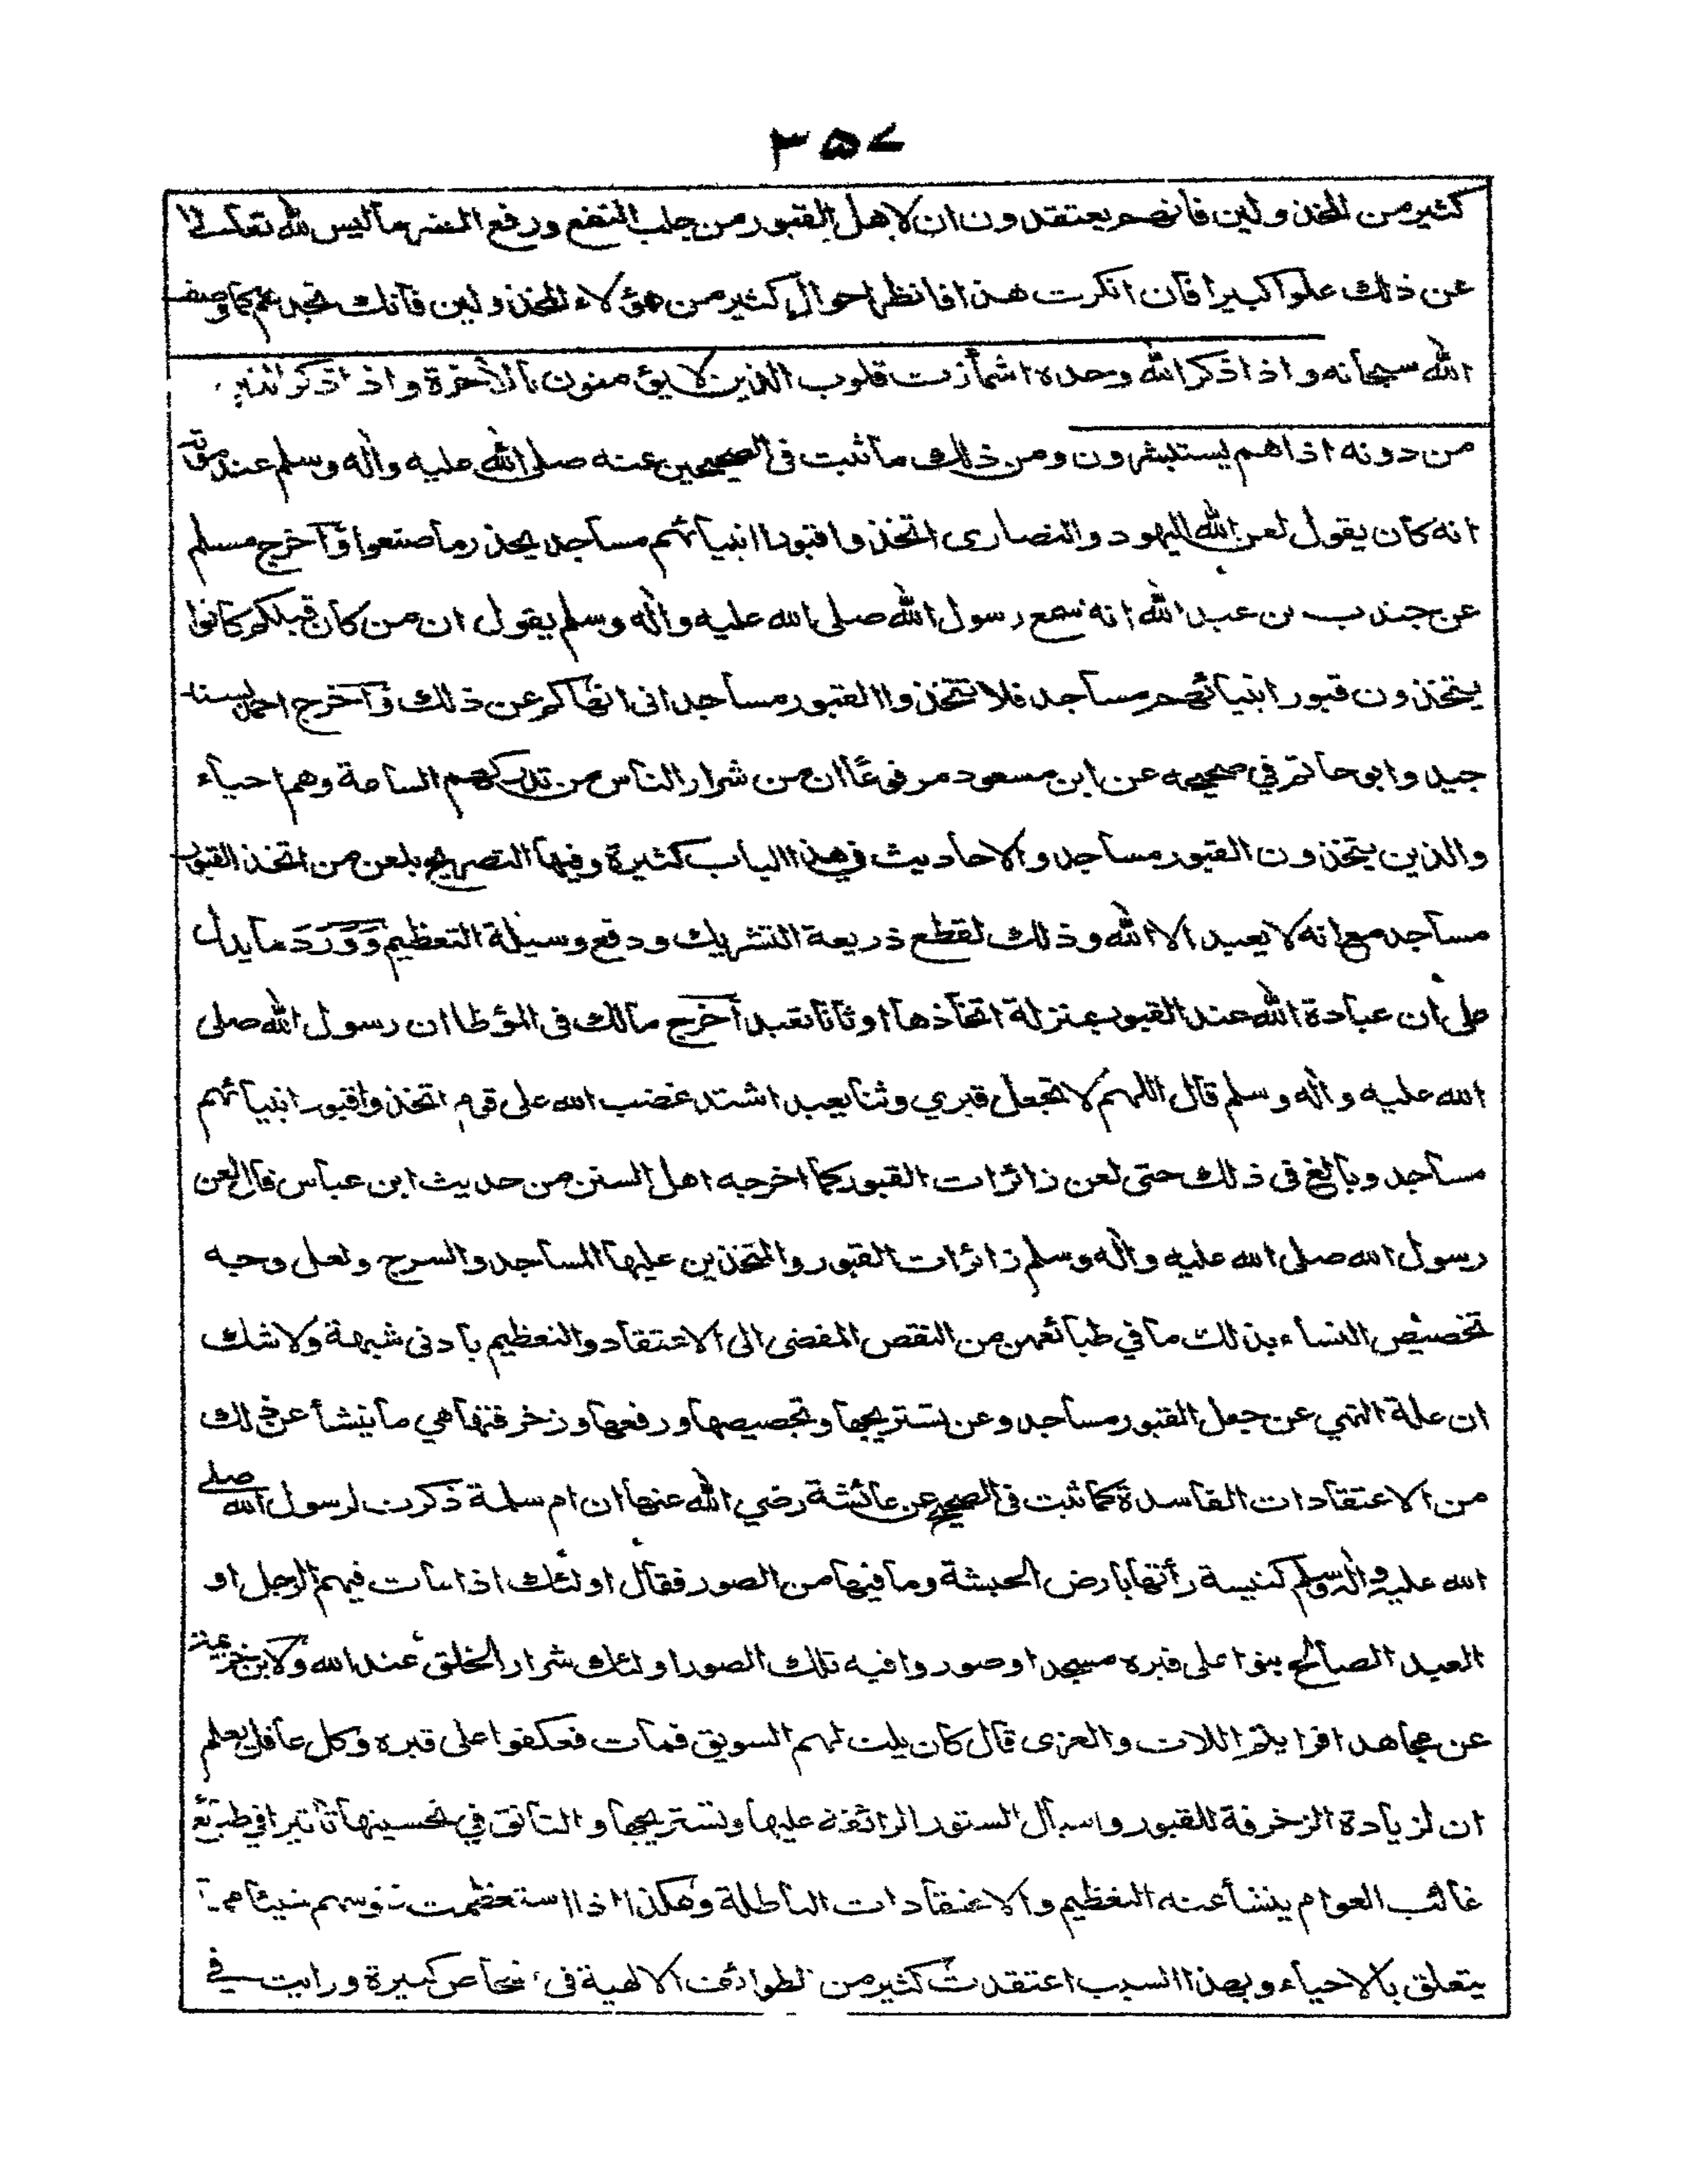 ٣٥٧
كثير من المخذولين فانهم يعتقدون ان لاهل القبور من جلب النفع ورفع الضر ما ليس لله تعالى
عن ذلك علوا كبيرا فان انكرت هذا فانظر احوال كثير من هؤلاء المخذولين فانك تجدهم كما وصف
الله سبحانه واذا ذكر الله وحده اشمأزت قلوب الذين لا يؤمنون بالآخرة واذا ذكر الذين
من دونه اذا هم يستبشرون ومن ذلك ما ثبت في الصحيحين عنه صلى الله عليه واله وسلم عند موته
انه كان يقول لعن الله اليهود والنصارى اتخذوا قبور انبيائهم مساجد يحذر ما صنعوا وأخرج مسلم
عن جندب بن عبد الله انه سمع رسول الله صلى الله عليه واله وسلم يقول ان من كان قبلكم كانوا
يتخذون قبور انبيائهم مساجد فلا تتخذوا القبور مساجد انى انهاكم عن ذلك وأخرج احمد بسند
جيد وابو حاتم في صحيحه عن ابن مسعود مرفوعا ان من شرار الناس من تدركهم الساعة وهم احياء
والذين يتخذون القبور مساجد والاحاديث في هذا الباب كثيرة وفيها التصريح بلعن من اتخذ القبور
مساجد مع انه لا يعبد الا الله وذلك لقطع ذريعة التشريك ودفع وسيلة التعظيم وَوَرَدَ ما يدل
على ان عبادة الله عند القبور بمنزلة اتخاذها اوثانا تعبد أخرج مالك في المؤطا ان رسول الله صلى
الله عليه واله وسلم قال اللهم لا تجعل قبري وثنا يعبد اشتد غضب الله على قوم اتخذوا قبور انبيائهم
مساجد وبالغ في ذلك حتى لعن زائرات القبور كما اخرجه اهل السنن من حديث ابن عباس قال لعن
رسول الله صلى الله عليه واله وسلم زائرات القبور والمتخذين عليها المساجد والسرج ولعل وجه
تخصيص النساء بذلك ما في طبائعهن من النقص المفضى الى الاعتقاد والتعظيم بادنى شبهة ولا شك
ان علة النهي عن جعل القبور مساجد وعن تسريجها وتجصيصها ورفعها وزخرفتها هي ما ينشأ عن ذلك
من الاعتقادات الفاسدة كما ثبت في الصحيح عن عائشة رضي الله عنها ان ام سلمة ذكرت لرسول الله صلى
الله عليه واله وسلم كنيسة رأتها بارض الحبشة وما فيها من الصور فقال اولئك اذا مات فيهم الرجل او
العبد الصالح بنوا على قبره مسجدا وصوروا فيه تلك الصور اولئك شرار الخلق عند الله ولابن خزيمة
عن مجاهد افرايتم اللات والعزى قال كان يلت لهم السويق فمات فعكفوا على قبره وكل عاقل يعلم
ان لزيادة الزخرفة للقبور واسبال الستور الرائقة عليها وتسريجها والتانق في تحسينها تأثيرا في طبائع
غالب العوام ينشأ عنه التعظيم والاعتقادات الباطلة وهكذا اذا استعظمت نفوسهم شيئا مما
يتعلق بالاحياء وبهذا السبب اعتقدت كثير من الطوائف الالهية في اشخاص كبيرة ورايت في